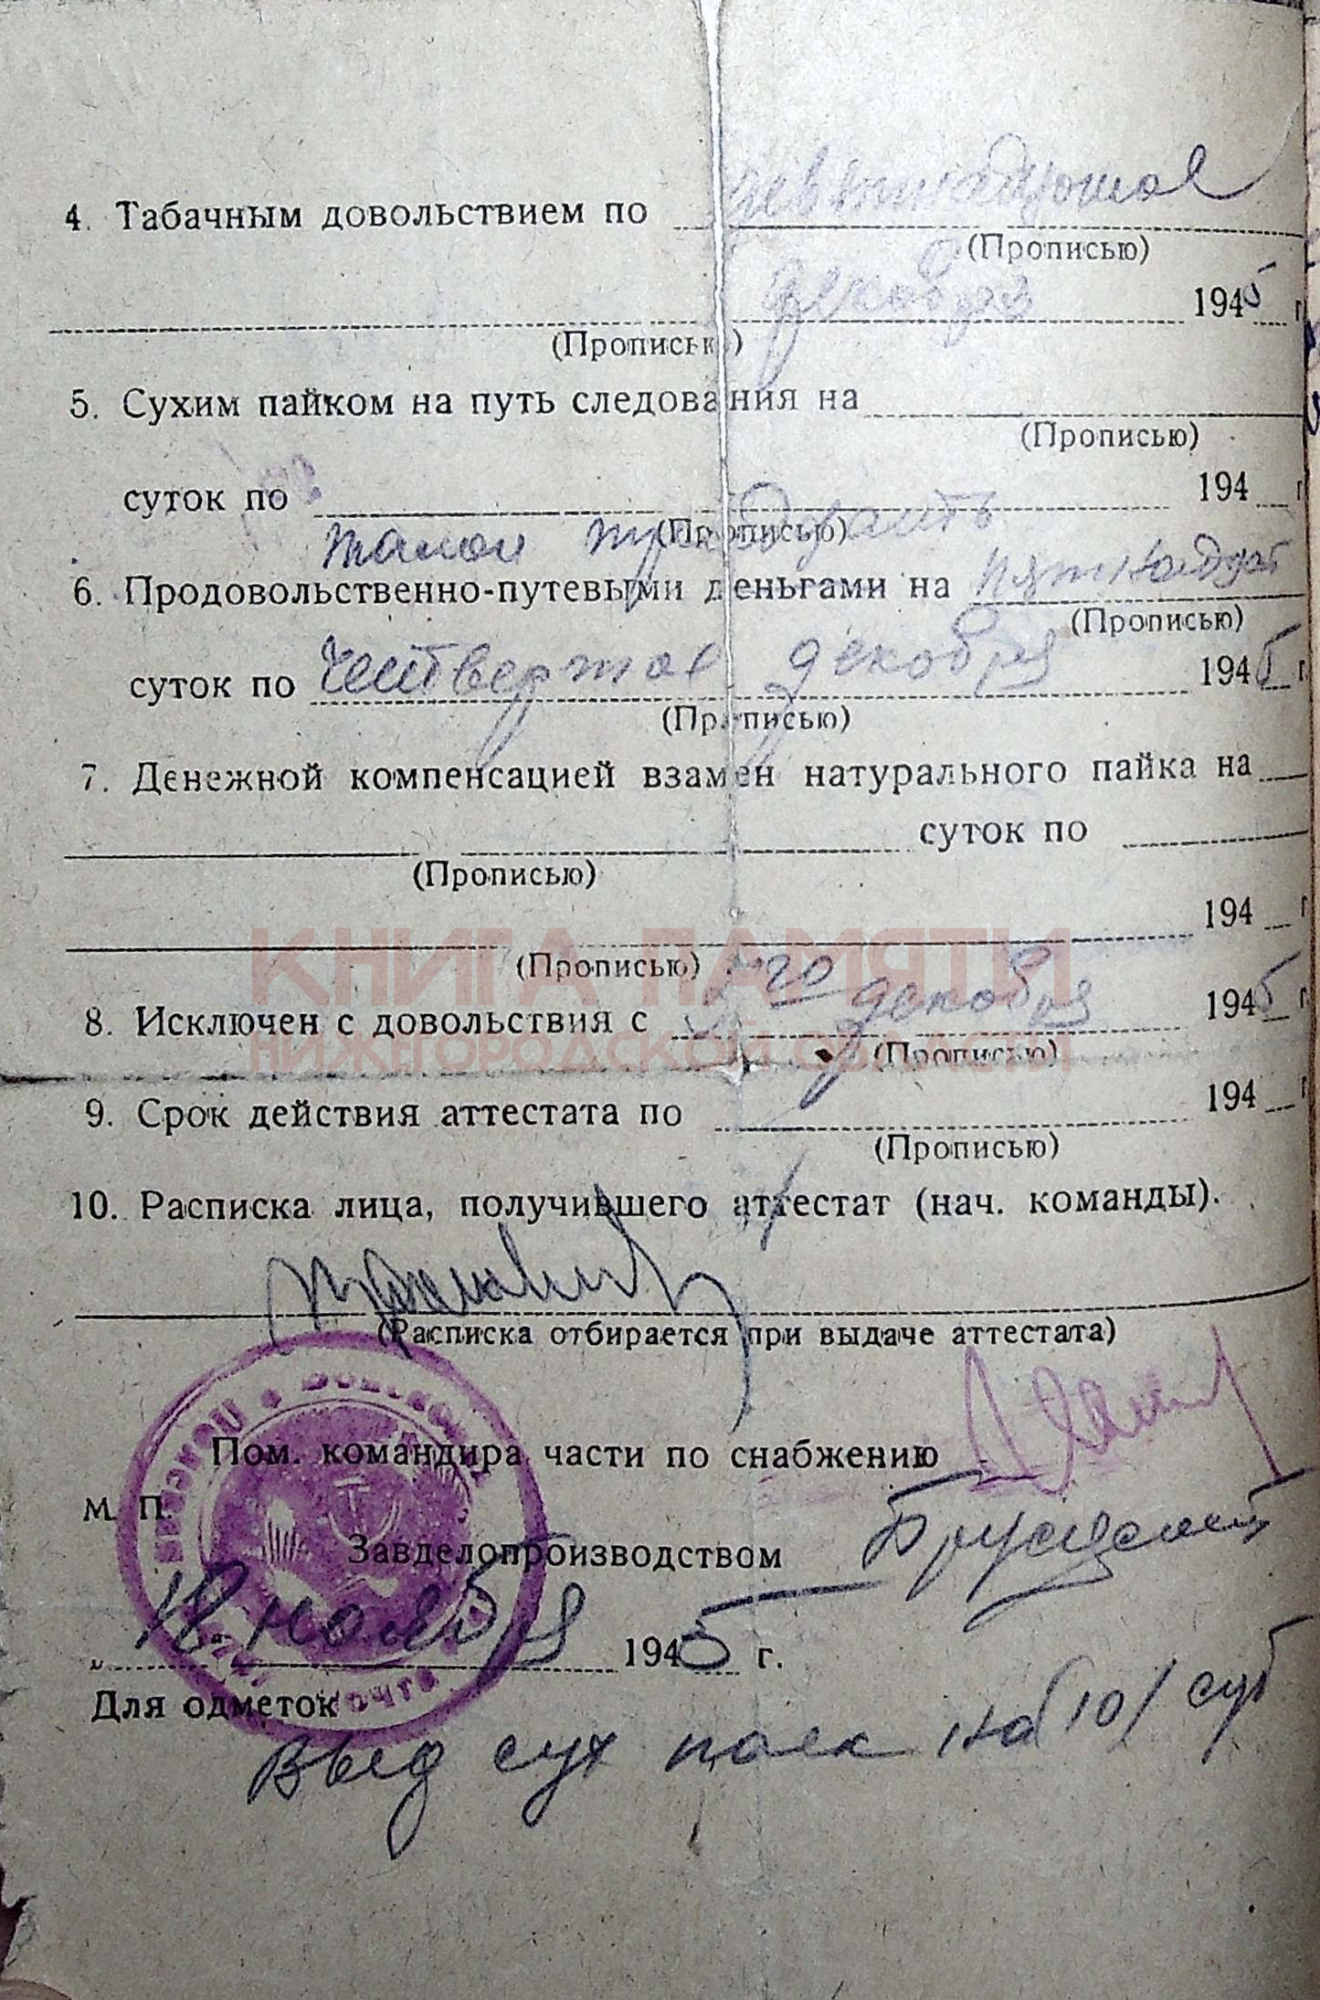 девятнадцатое
4. Табачным довольствием по
(Прописью)
декабря 1945 г
(Прописью)
5. Сухим пайком на путь следования на
(Прописью)
суток по 194 г
(Прописью)
талон
6. Продовольственно-путевыми деньгами на пятнадцат
(Прописью)
суток по четвертое декабря 1945 г.
(Прописью)
7. Денежной компенсацией взамен натурального пайка на
суток по
(Прописью)
194 г
(Прописью)
КНИГА ПАМЯТИ
НИЖЕГОРОДСКОЙ ОБЛАСТИ
8. Исключен с довольствия с го декабря 1945 г
(Прописью)
9. Срок действия аттестата по 194 г
(Прописью)
10. Расписка лица, получившего аттестат (нач. команды).
(Расписка отбирается при выдаче аттестата)
Пом. командира части по снабжению
М. П.
Завделопроизводством
„18“ ноября 1945 г.
Для одметок
Выд сух паек на 10 сут